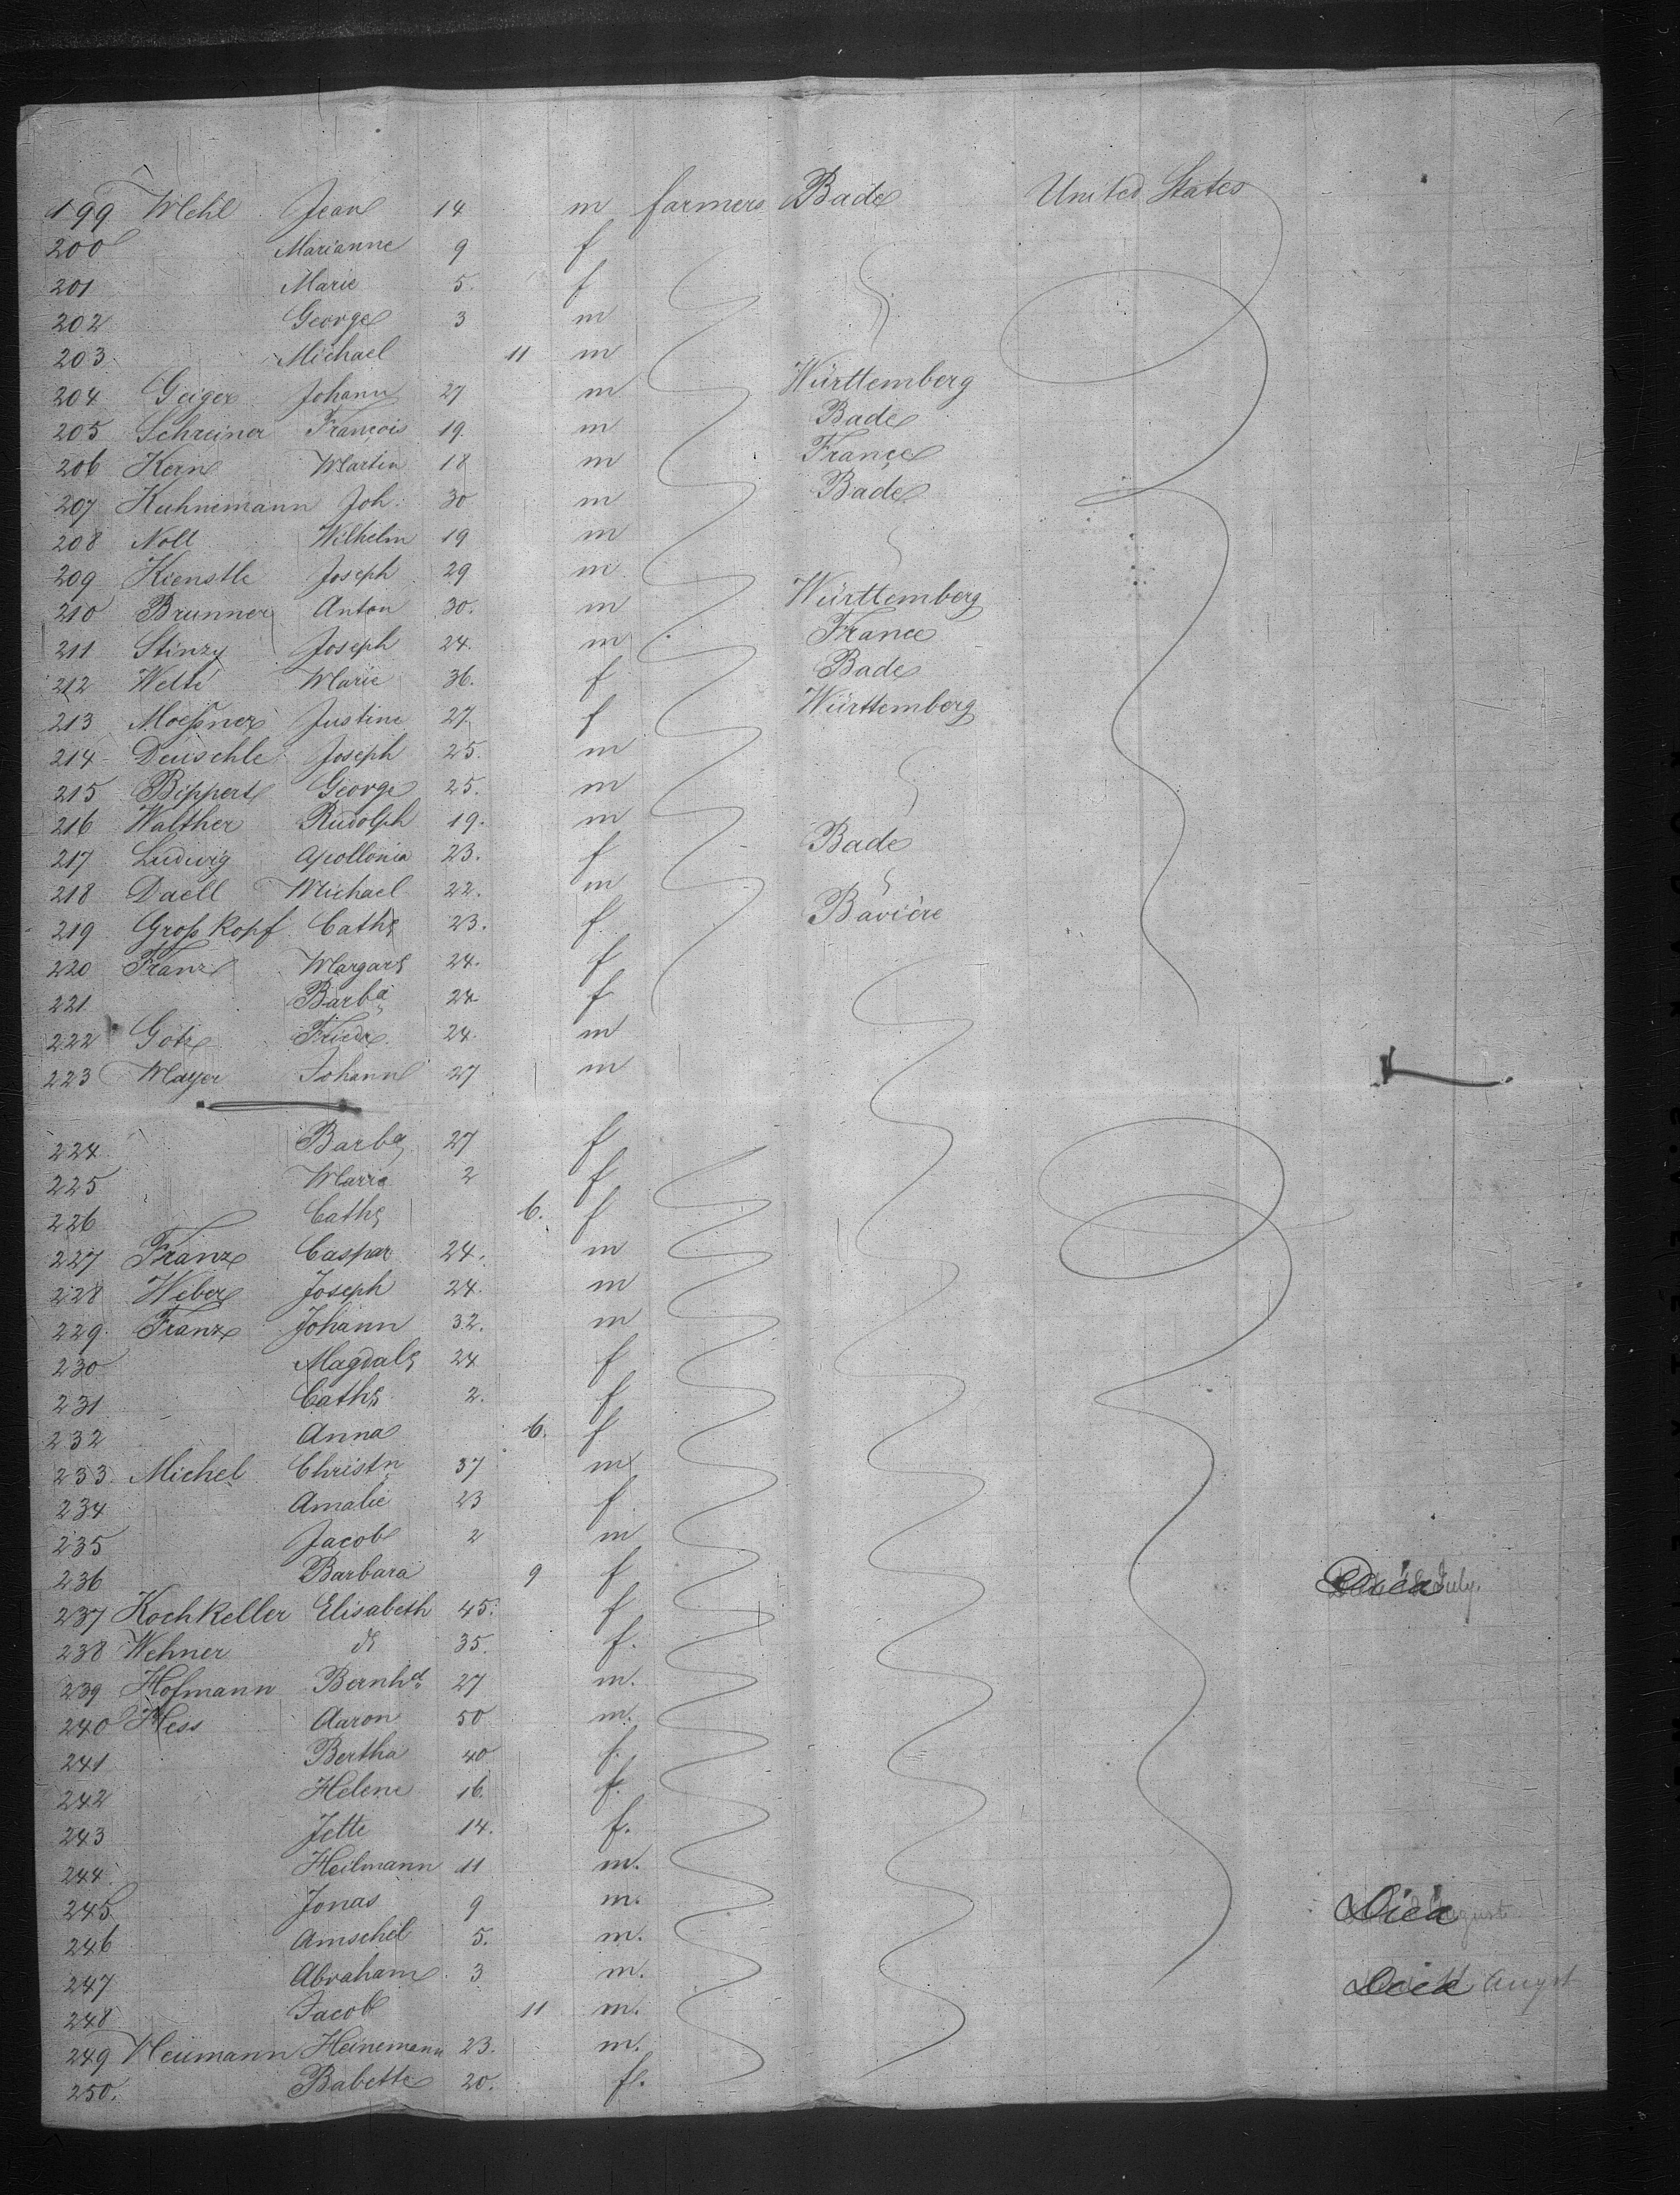 199 Mehl Jean 14 m farmers Bade United States
200 Marianne 9 f
201 Marie 5. f
202 George 3 m
203. Michael 11 m
204 Geiger Johann 27 m Württemberg
205 Schreiner François 19. m Bade
206 Kern Martin 18 m France
207 Kuhnemann Joh. 30 m Bade
208 Noll Wilhelm 19 m
209 Kienstle Joseph 29 m
210 Brunner Anton 30. m Württemberg
211 Stinzy Joseph 24. m France
212 Welte Marie 36. f Bade
213 Moeßner Justine 27. f Württemberg
214 Deuschle Joseph 25. m
215 Bippert George 25. m
216 Walther Rudolph 19. m
217 Ludwig Apollonia 23. f Bade
218 Daell Michael 22. m
219 Großkopf Cath. 23. f Bavière
220 Franz Margar. 24. f
221 Barba 24 f
222 Götz Friedr. 24. m
223 Mayer Johann 27 m
224 Barba 27 f
225 Marie 2 f
226 Cath. 6. f
227 Franz Caspar 24. m
228 Weber Joseph 24. m
229. Franz Johann 32. m
230 Magdal. 24 f
231 Cath. 2. f
232 Anna 6. f
233. Michel Christn 37 m
234 Amalie 23 f
235 Jacob 2 m
236 Barbara 9 f Died July.
237 Kochkeller Elisabeth 45. f
238 Wehner do 35. f.
239 Hofmann Bernhd 27 m.
240 Hess Aaron 50 m.
241 Bertha 40 f.
242 Helene 16. f.
243 Jette 14. f.
244. Heilmann 11 m.
245 Jonas 9 m. Died August
246 Amschel 5. m.
247 Abraham 3 m. Died Augst
248 Jacob 11 m.
249 Neumann Heinemann 23. m.
250. Babette 20. f.